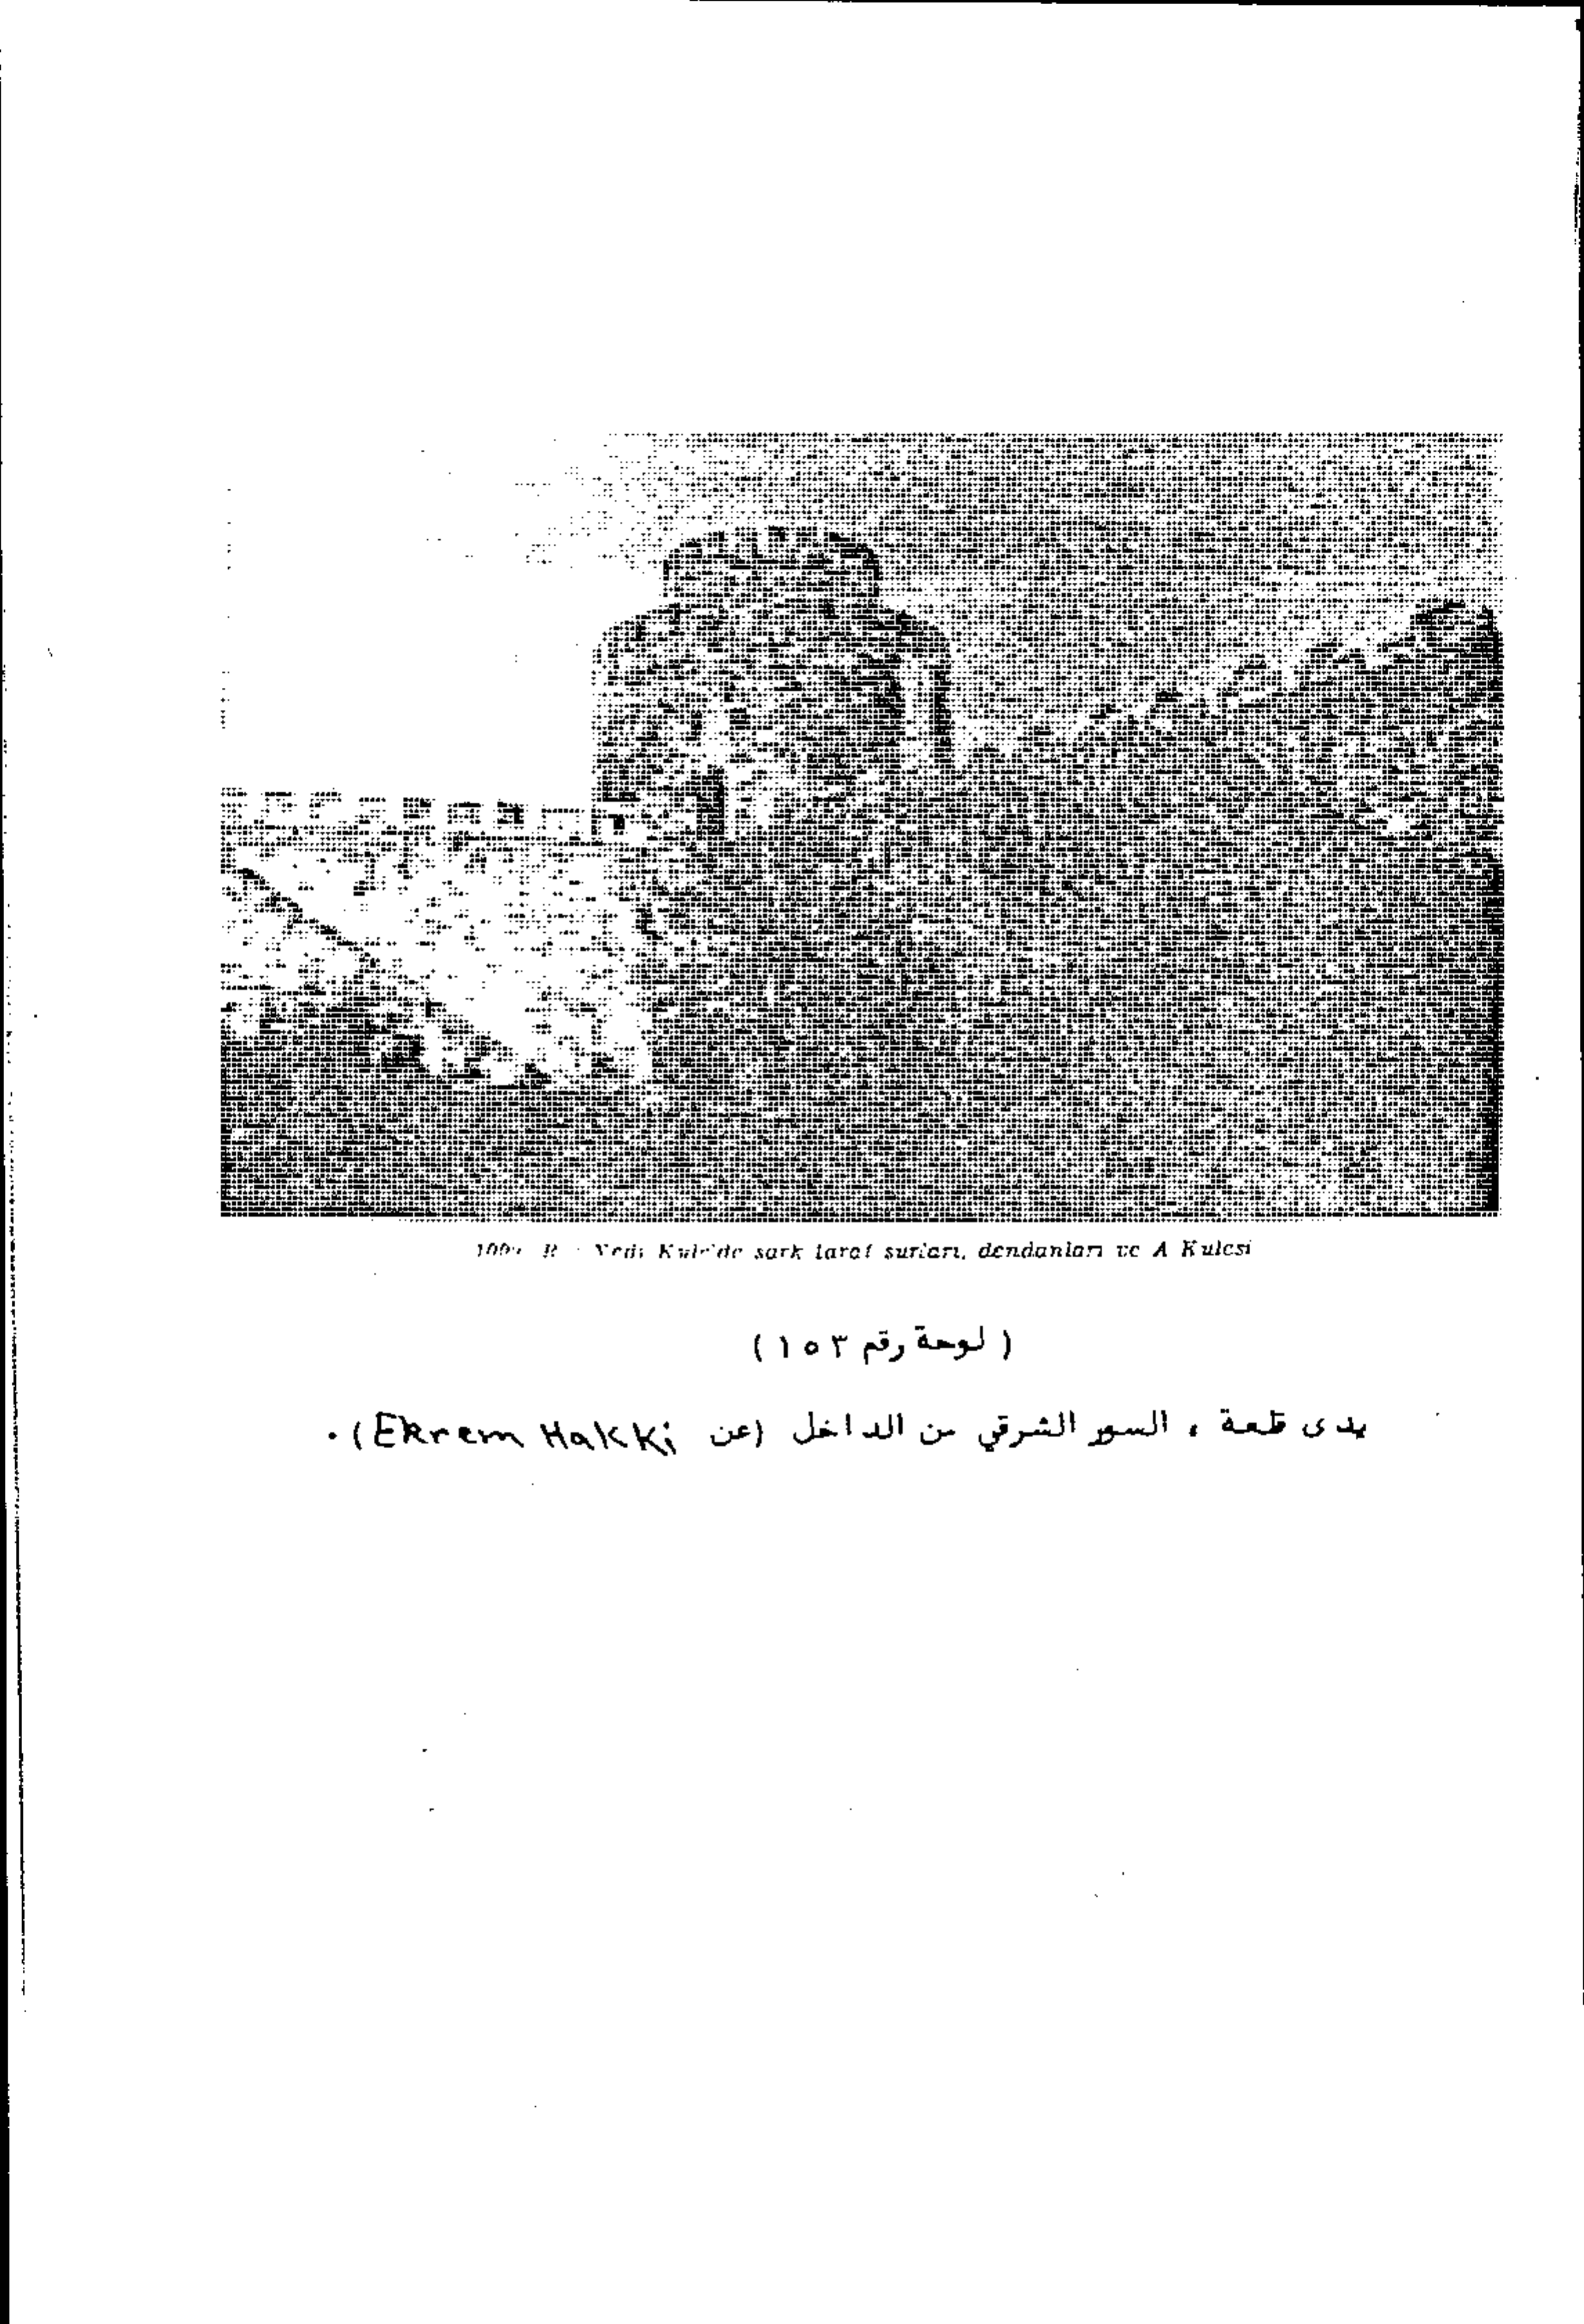 Yedi Kule'de şark taraf surları, dendanları ve A Kulesi
( لوحة رقم ١٥٣ )
يدى قلعة ، السور الشرقي من الداخل (عن Ekrem Hakki) .